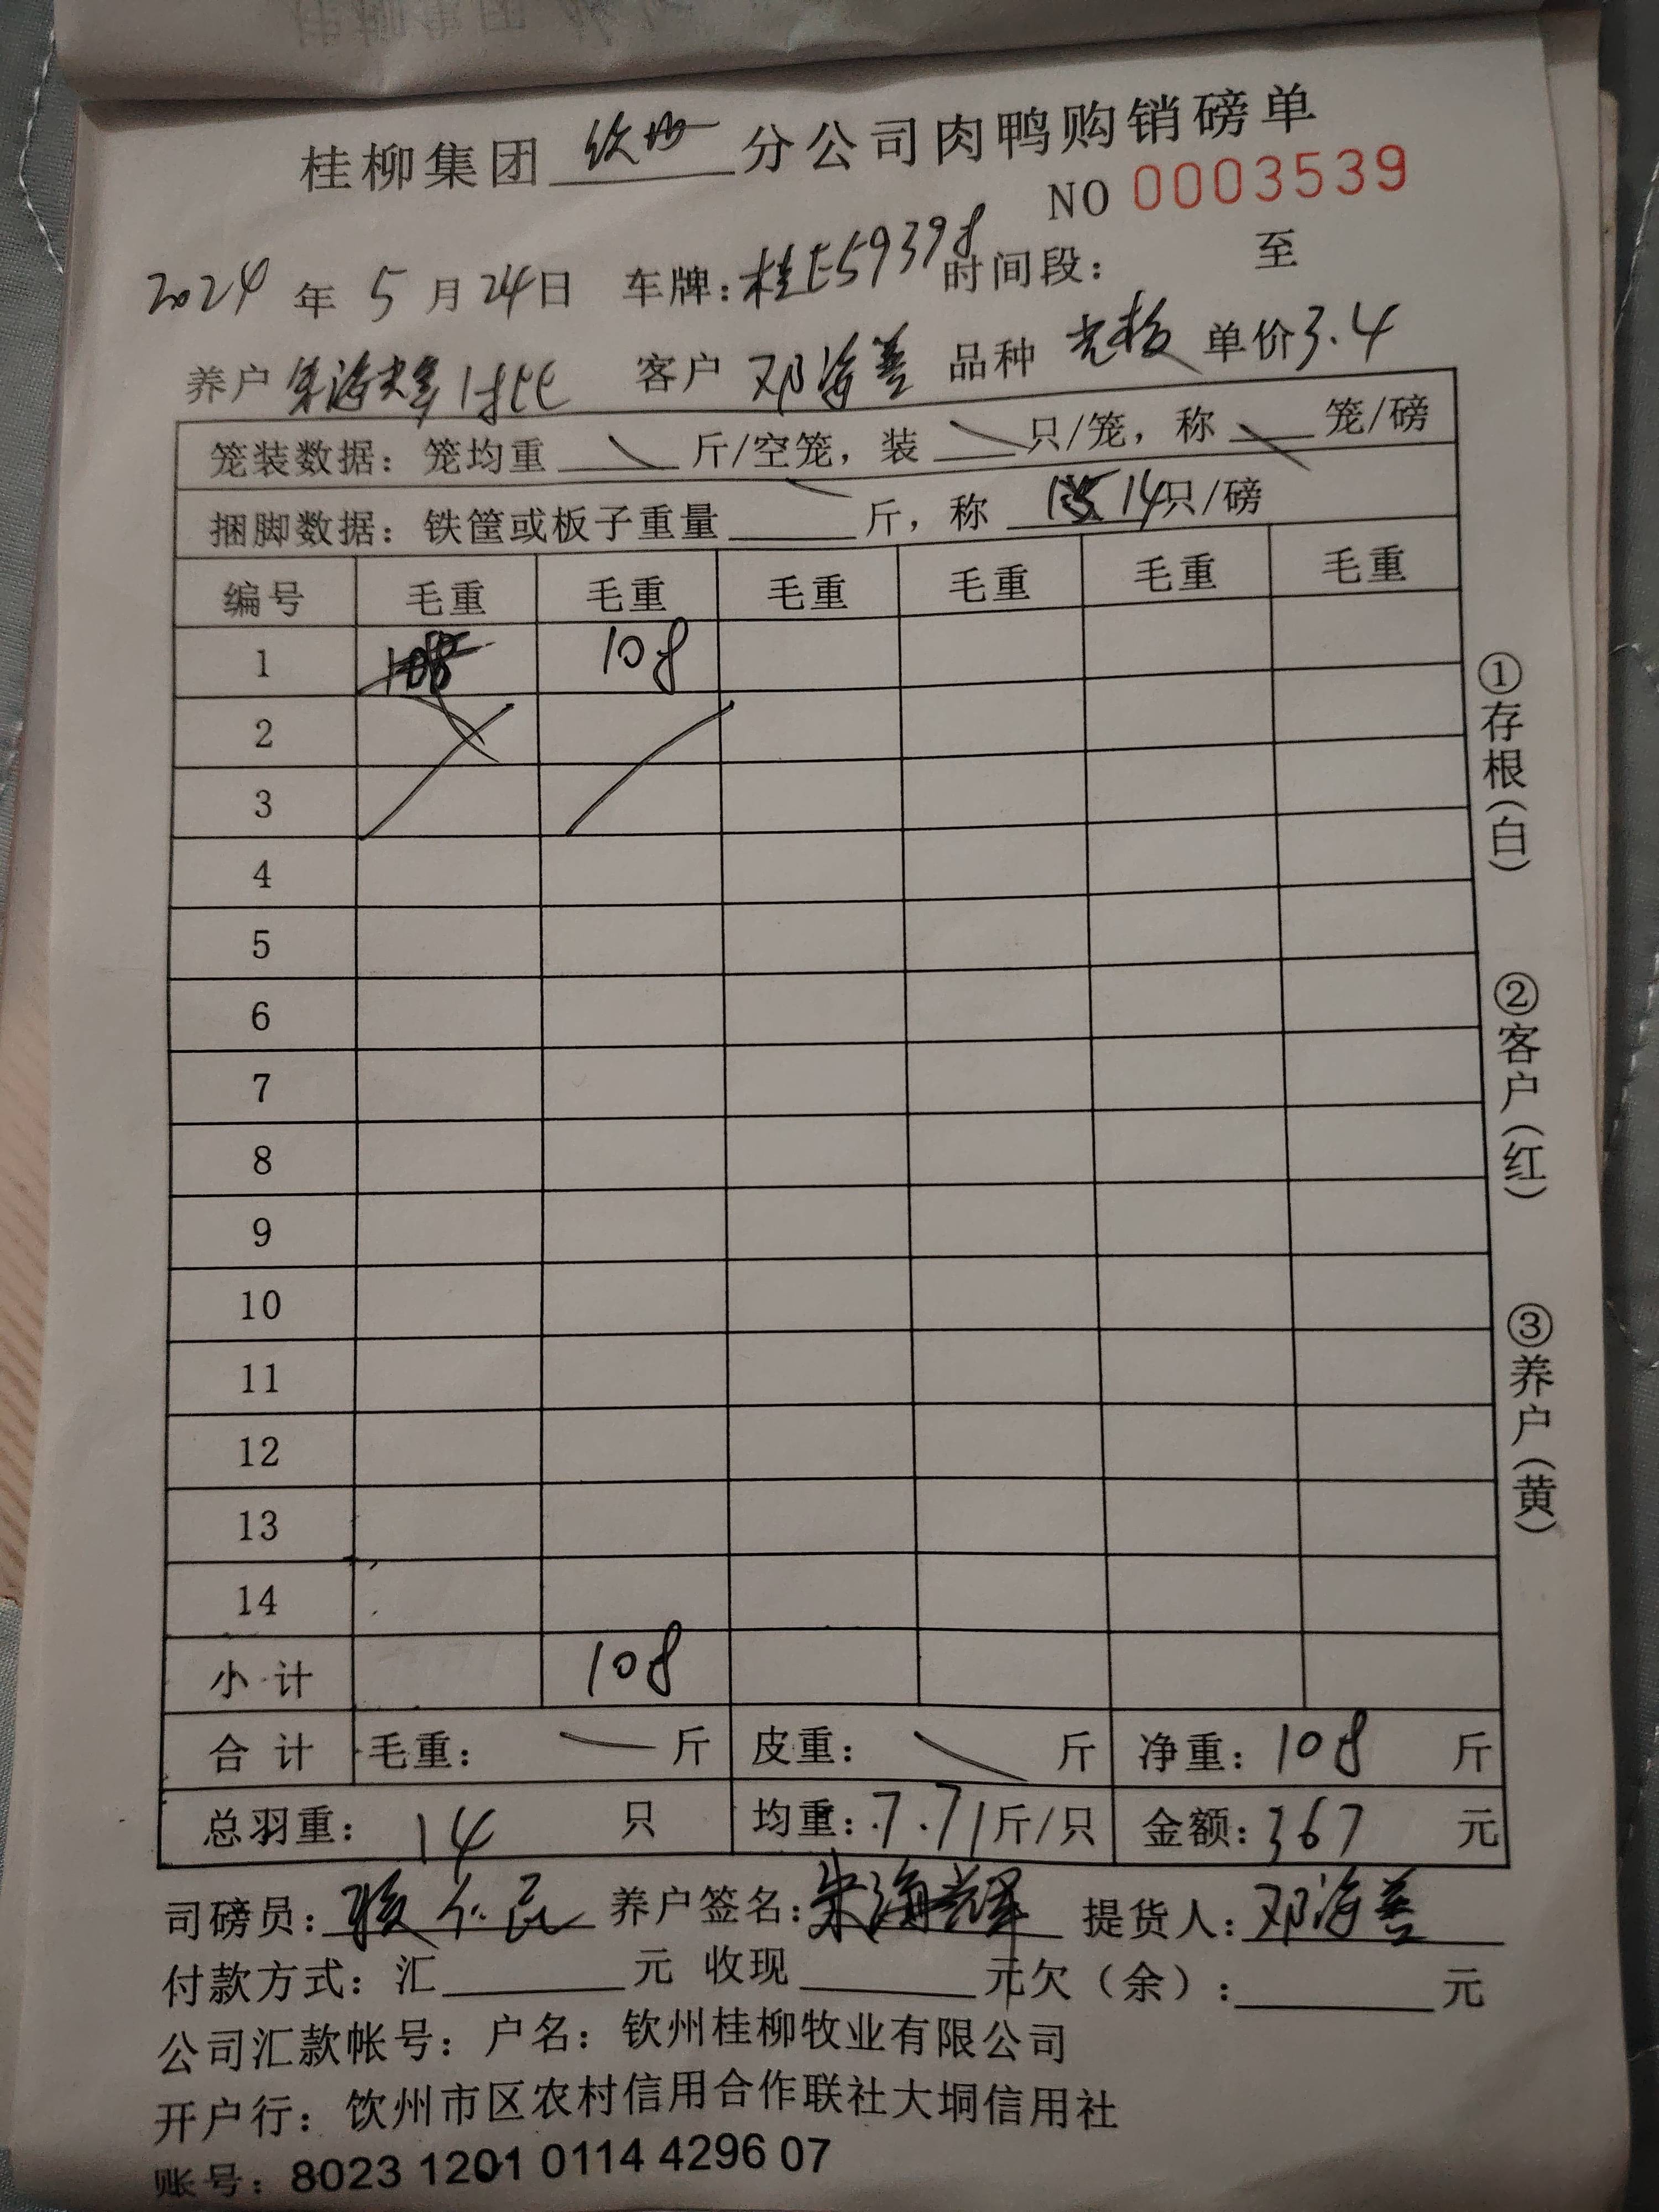 桂柳集团 钦州 分公司肉鸭购销磅单
NO 0003539
2024 年 5 月 24 日 车牌：桂E59398 时间段： 至
养户 朱海辉 客户 邓海善 品种 单价 3.4
笼装数据：笼均重 斤/空笼，装 只/笼，称 笼/磅
捆脚数据：铁筐或板子重量 斤，称 14只/磅
编号 毛重 毛重 毛重 毛重 毛重 毛重
1 108 108
2
3
4
5
6
7
8
9
10
11
12
13
14
小计 108
合计 毛重： 斤 皮重： 斤 净重：108 斤
总羽重：14 只 均重：7.71斤/只 金额：367 元
司磅员： 养户签名：朱海辉 提货人：邓海善
付款方式：汇 元 收现 元欠（余）： 元
公司汇款帐号：户名：钦州桂柳牧业有限公司
开户行：钦州市区农村信用合作联社大垌信用社
账号：8023 1201 0114 4296 07
①存根（白）
②客户（红）
③养户（黄）